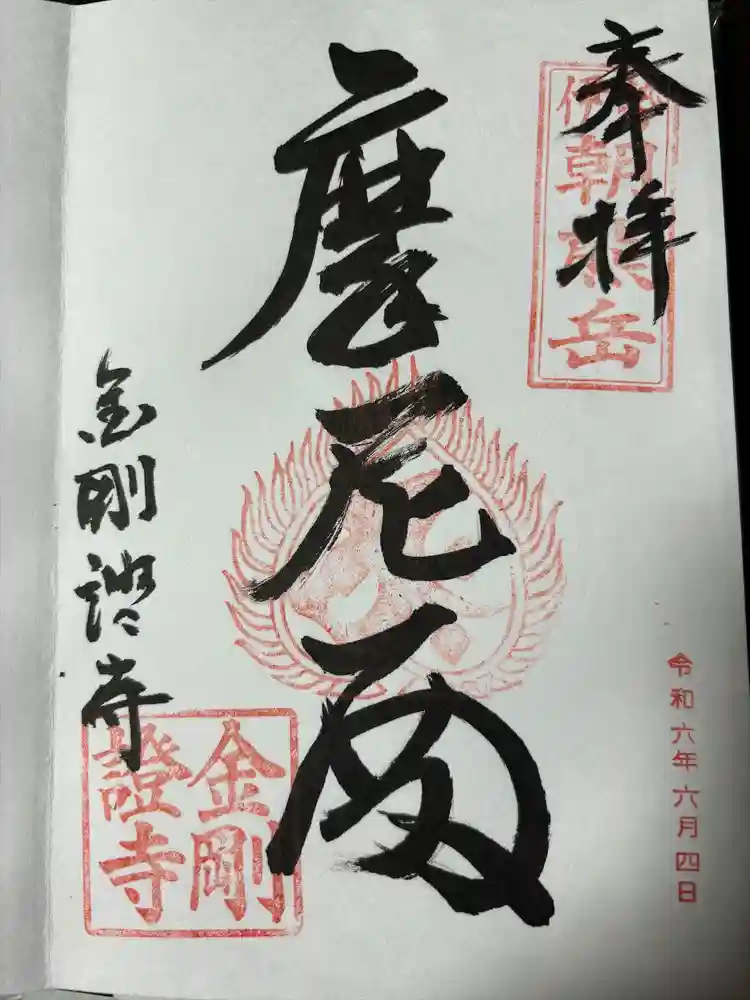 奉拝
伊勢朝熊岳
摩尼殿
金剛證寺
金剛證寺
令和六年六月四日